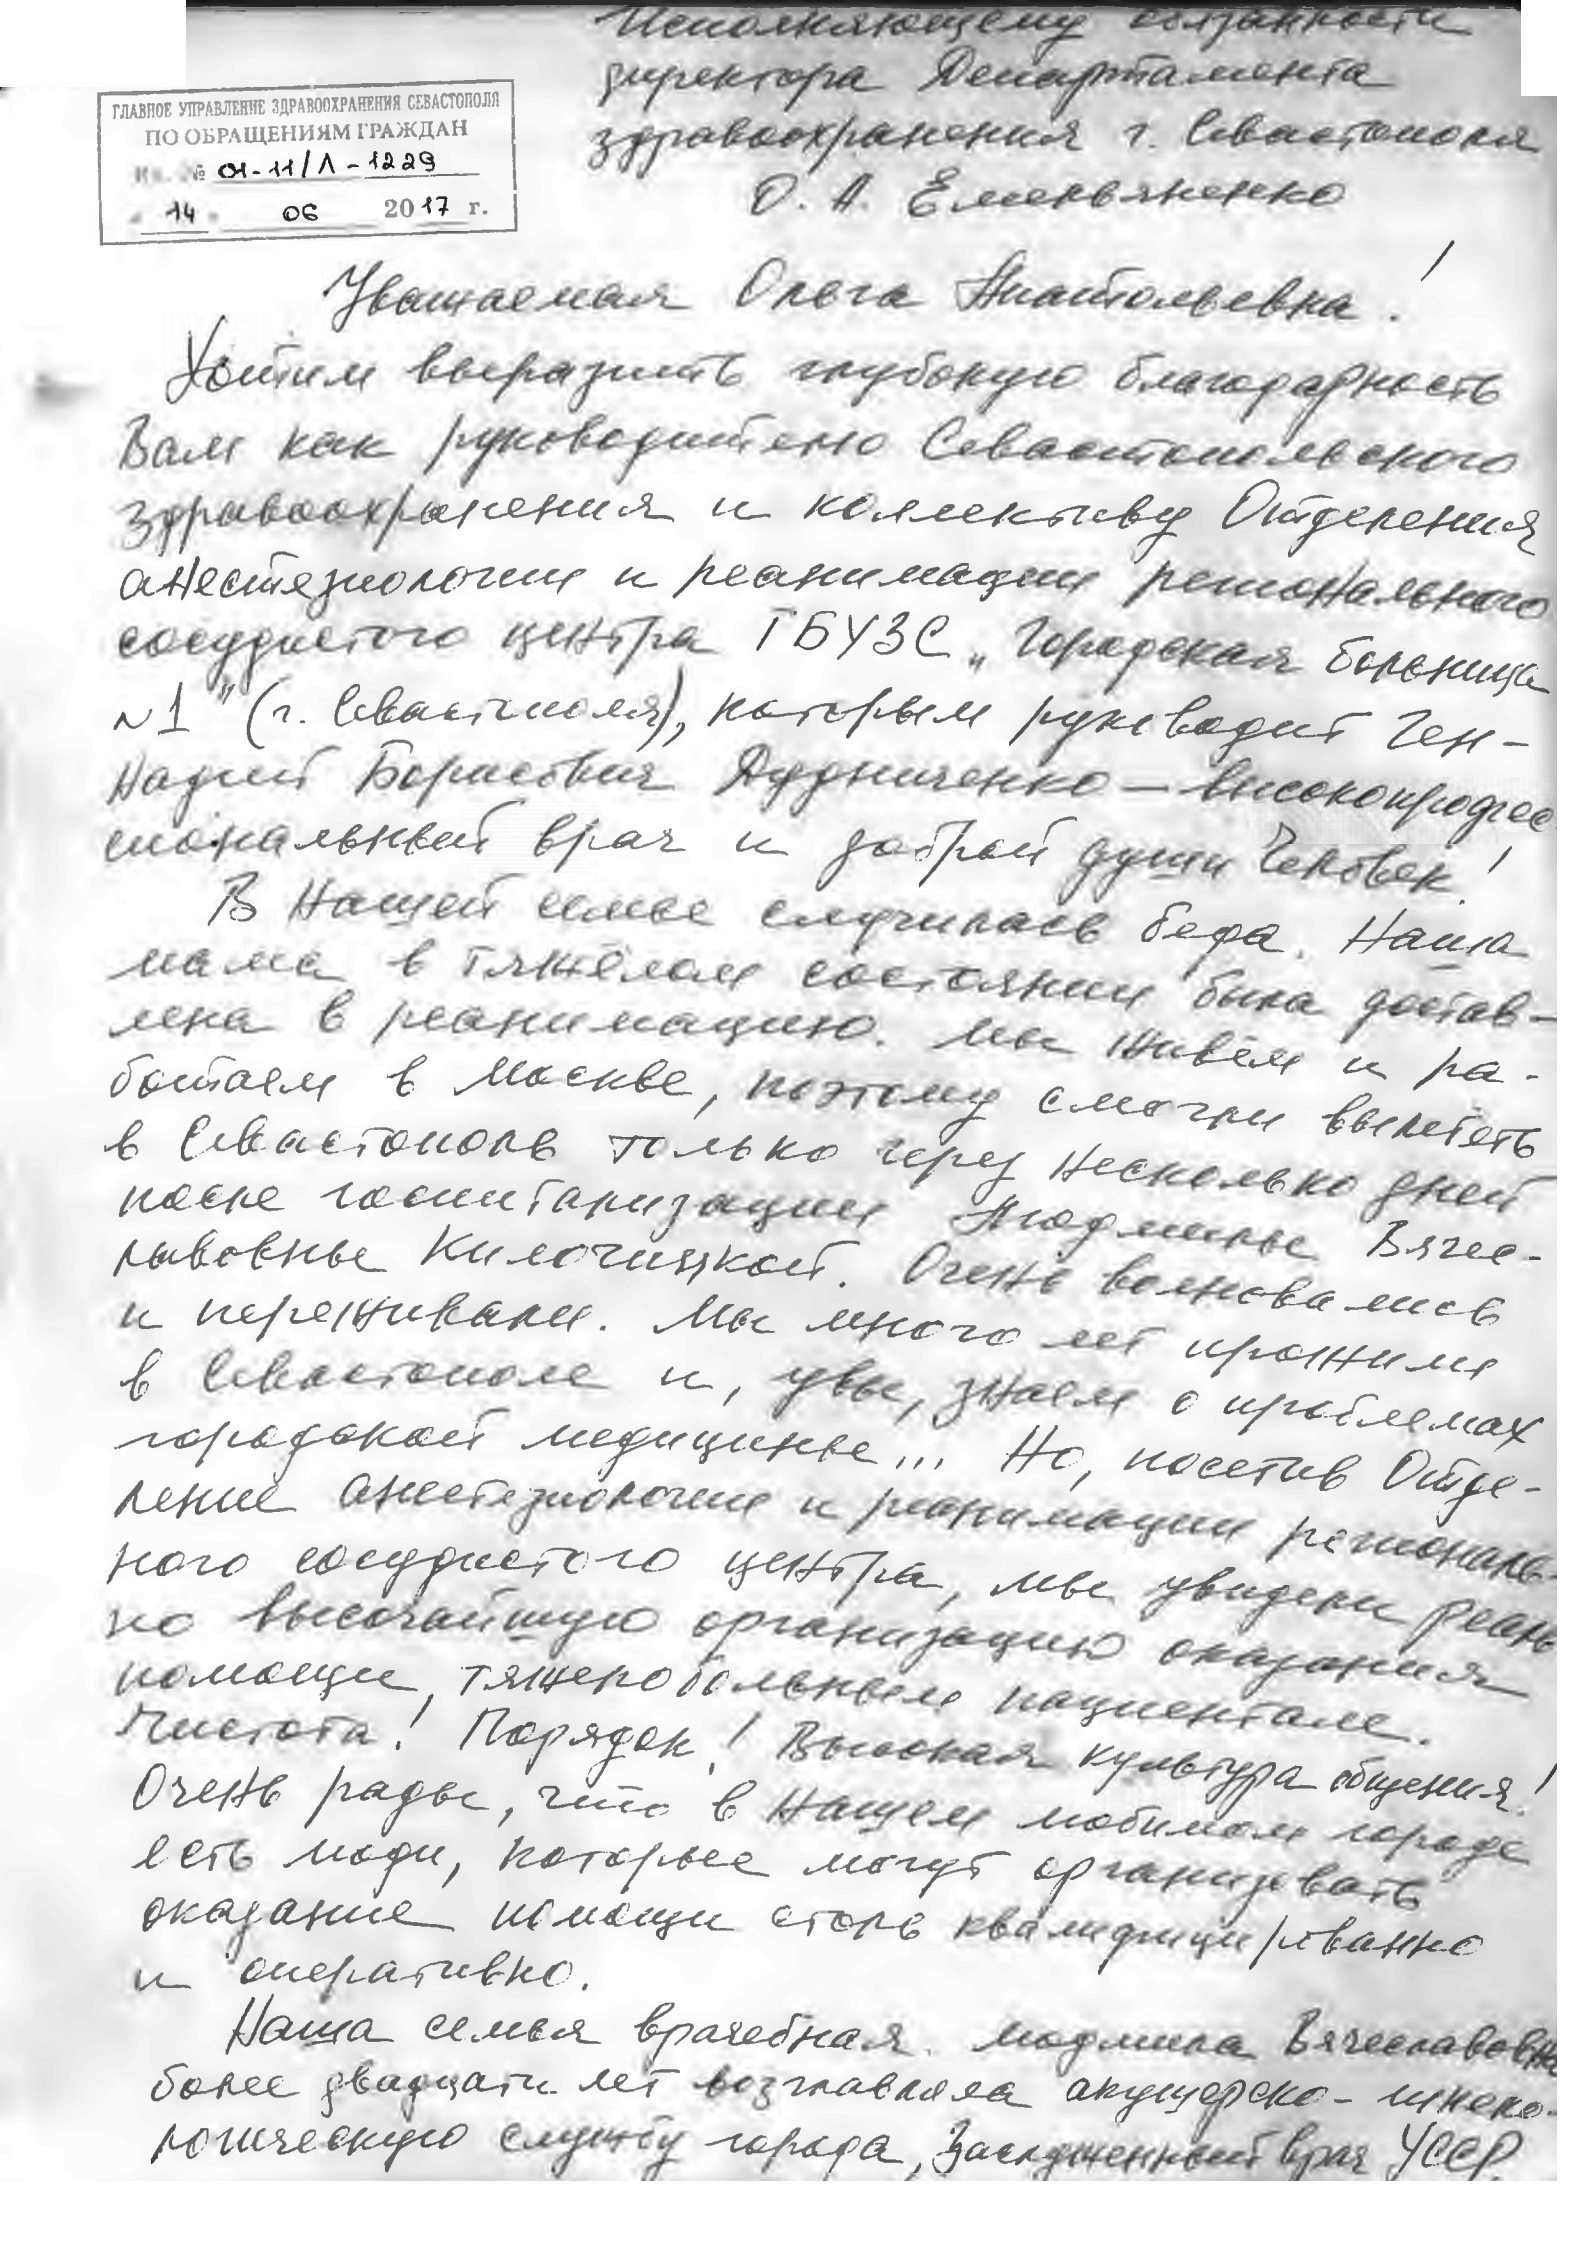 Исполняющему обязанности
директора Департамента
здравоохранения г. Севастополя
О. А. Емельяненко
ГЛАВНОЕ УПРАВЛЕНИЕ ЗДРАВООХРАНЕНИЯ СЕВАСТОПОЛЯ
ПО ОБРАЩЕНИЯМ ГРАЖДАН
Вх. № 01-11/Л-1229
" 14 " 06 2017 г.
Уважаемая Ольга Анатольевна!
Хотим выразить глубокую благодарность
Вам как руководителю Севастопольского
здравоохранения и коллективу Отделения
анестезиологии и реанимации регионального
сосудистого центра ГБУЗС „Городская больница
№1" (г. Севастополя), которым руководит Ген-
надий Борисович Дудниченко – высокопрофес
сиональный врач и доброй души Человек!
В нашей семье случилась беда. Наша
мама в тяжёлом состоянии была достав-
лена в реанимацию. Мы живём и ра-
ботаем в Москве, поэтому смогли вылететь
в Севастополь только через несколько дней
после госпитализации Людмилы Вячес-
лавовны Килочицкой. Очень волновались
и переживали. Мы много лет прожили
в Севастополе и, увы, знаем о проблемах
городской медицины... Но, посетив Отде-
ление анестезиологии и реанимации региональ-
ного сосудистого центра, мы увидели реаль
но высочайшую организацию оказания
помощи тяжелобольным пациентам.
Чистота! Порядок! Высокая культура общения!
Очень рады, что в нашем любимом городе
есть люди, которые могут организовать
оказание помощи столь квалифицированно
и оперативно.
Наша семья врачебная. Людмила Вячеславовна
более двадцати лет возглавляла акушерско-гинеко-
логическую службу города, Заслуженный врач УССР.